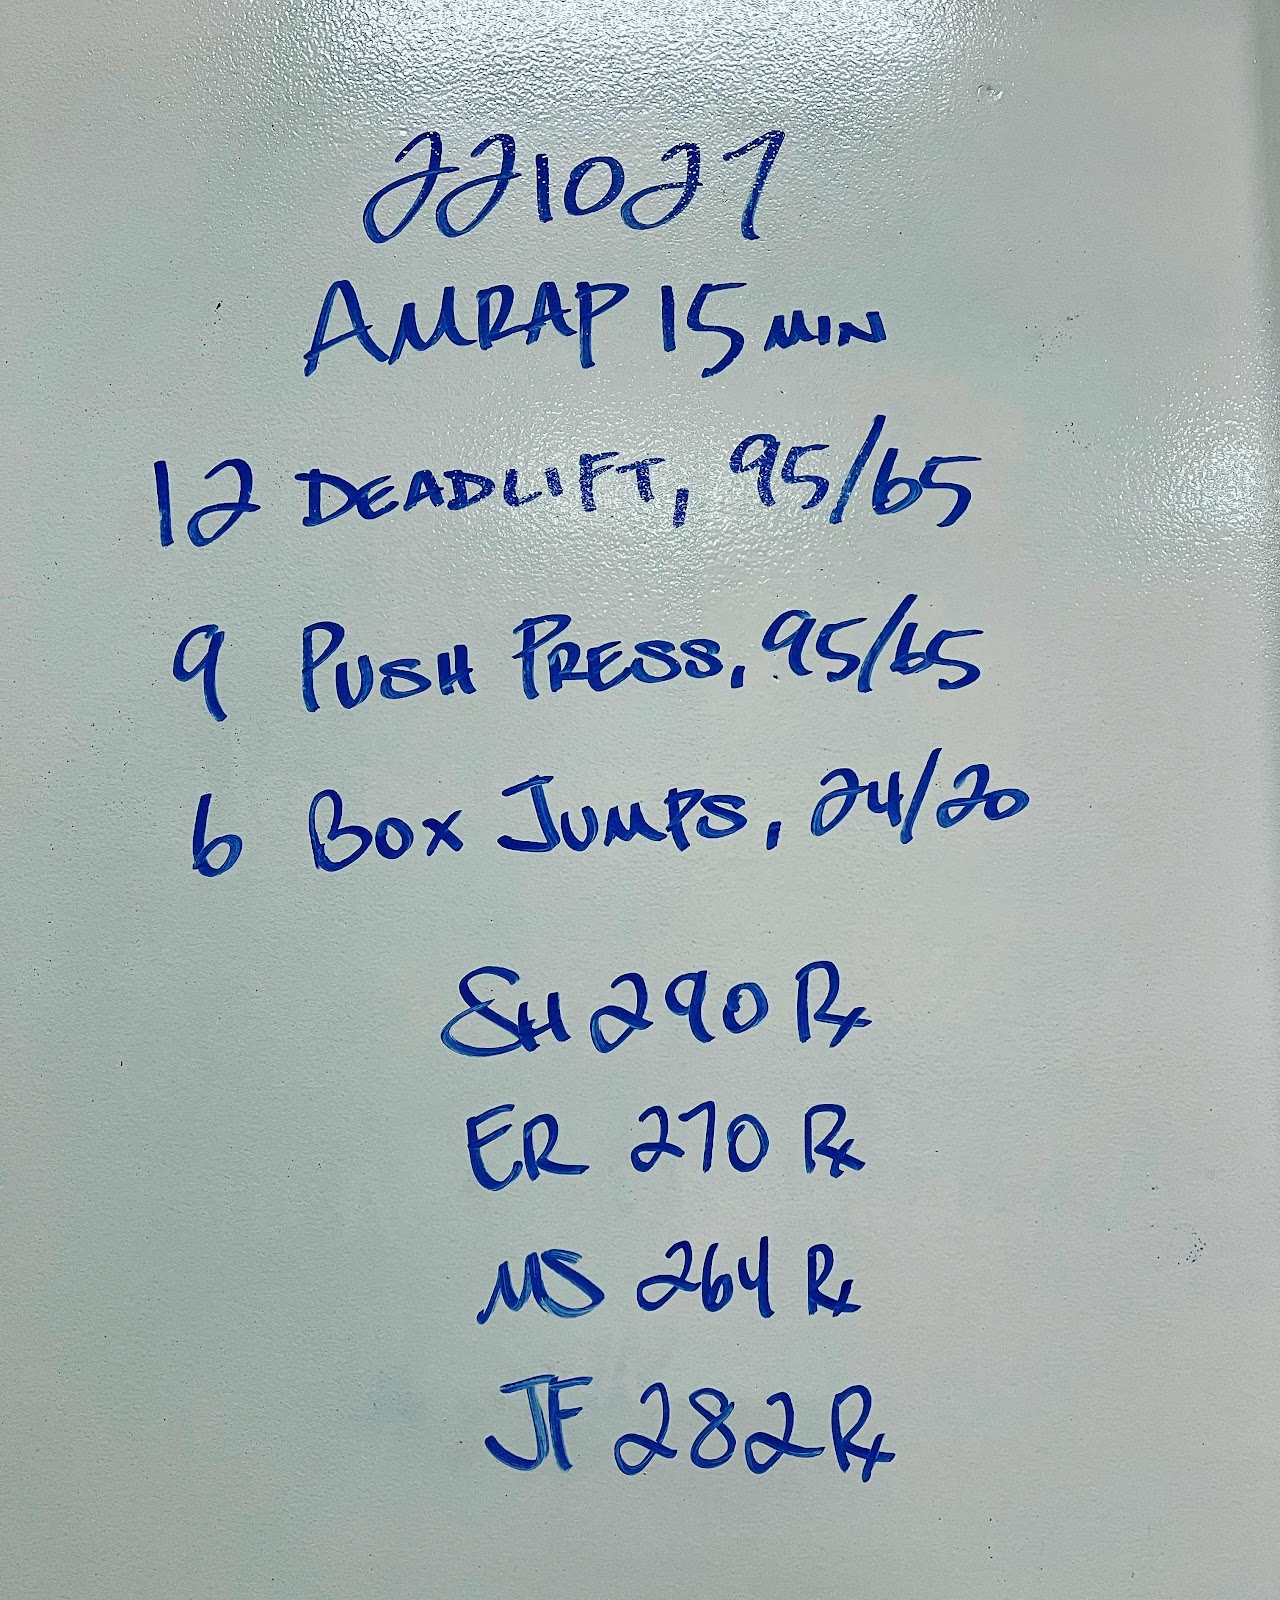 221027
AMRAP 15 MIN
12 DEADLIFT, 95/65
9 PUSH PRESS, 95/65
6 BOX JUMPS, 24/20
SH 290 Rx
ER 270 Rx
MS 264 Rx
JF 282 Rx